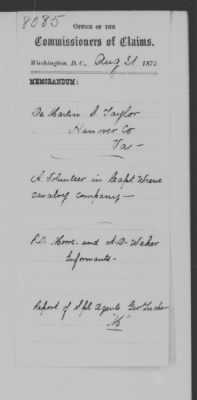 8085
OFFICE OF THE
Commissioners of Claims.
Washington, D.C., Aug 31 1872
MEMORANDUM:
De Martin S. Taylor
Hanover Co
Va
A Volunteer in Capt
cavalry company
P.D. Howe and A.D.
Informants
Report of Spl Agents Geo Tucker